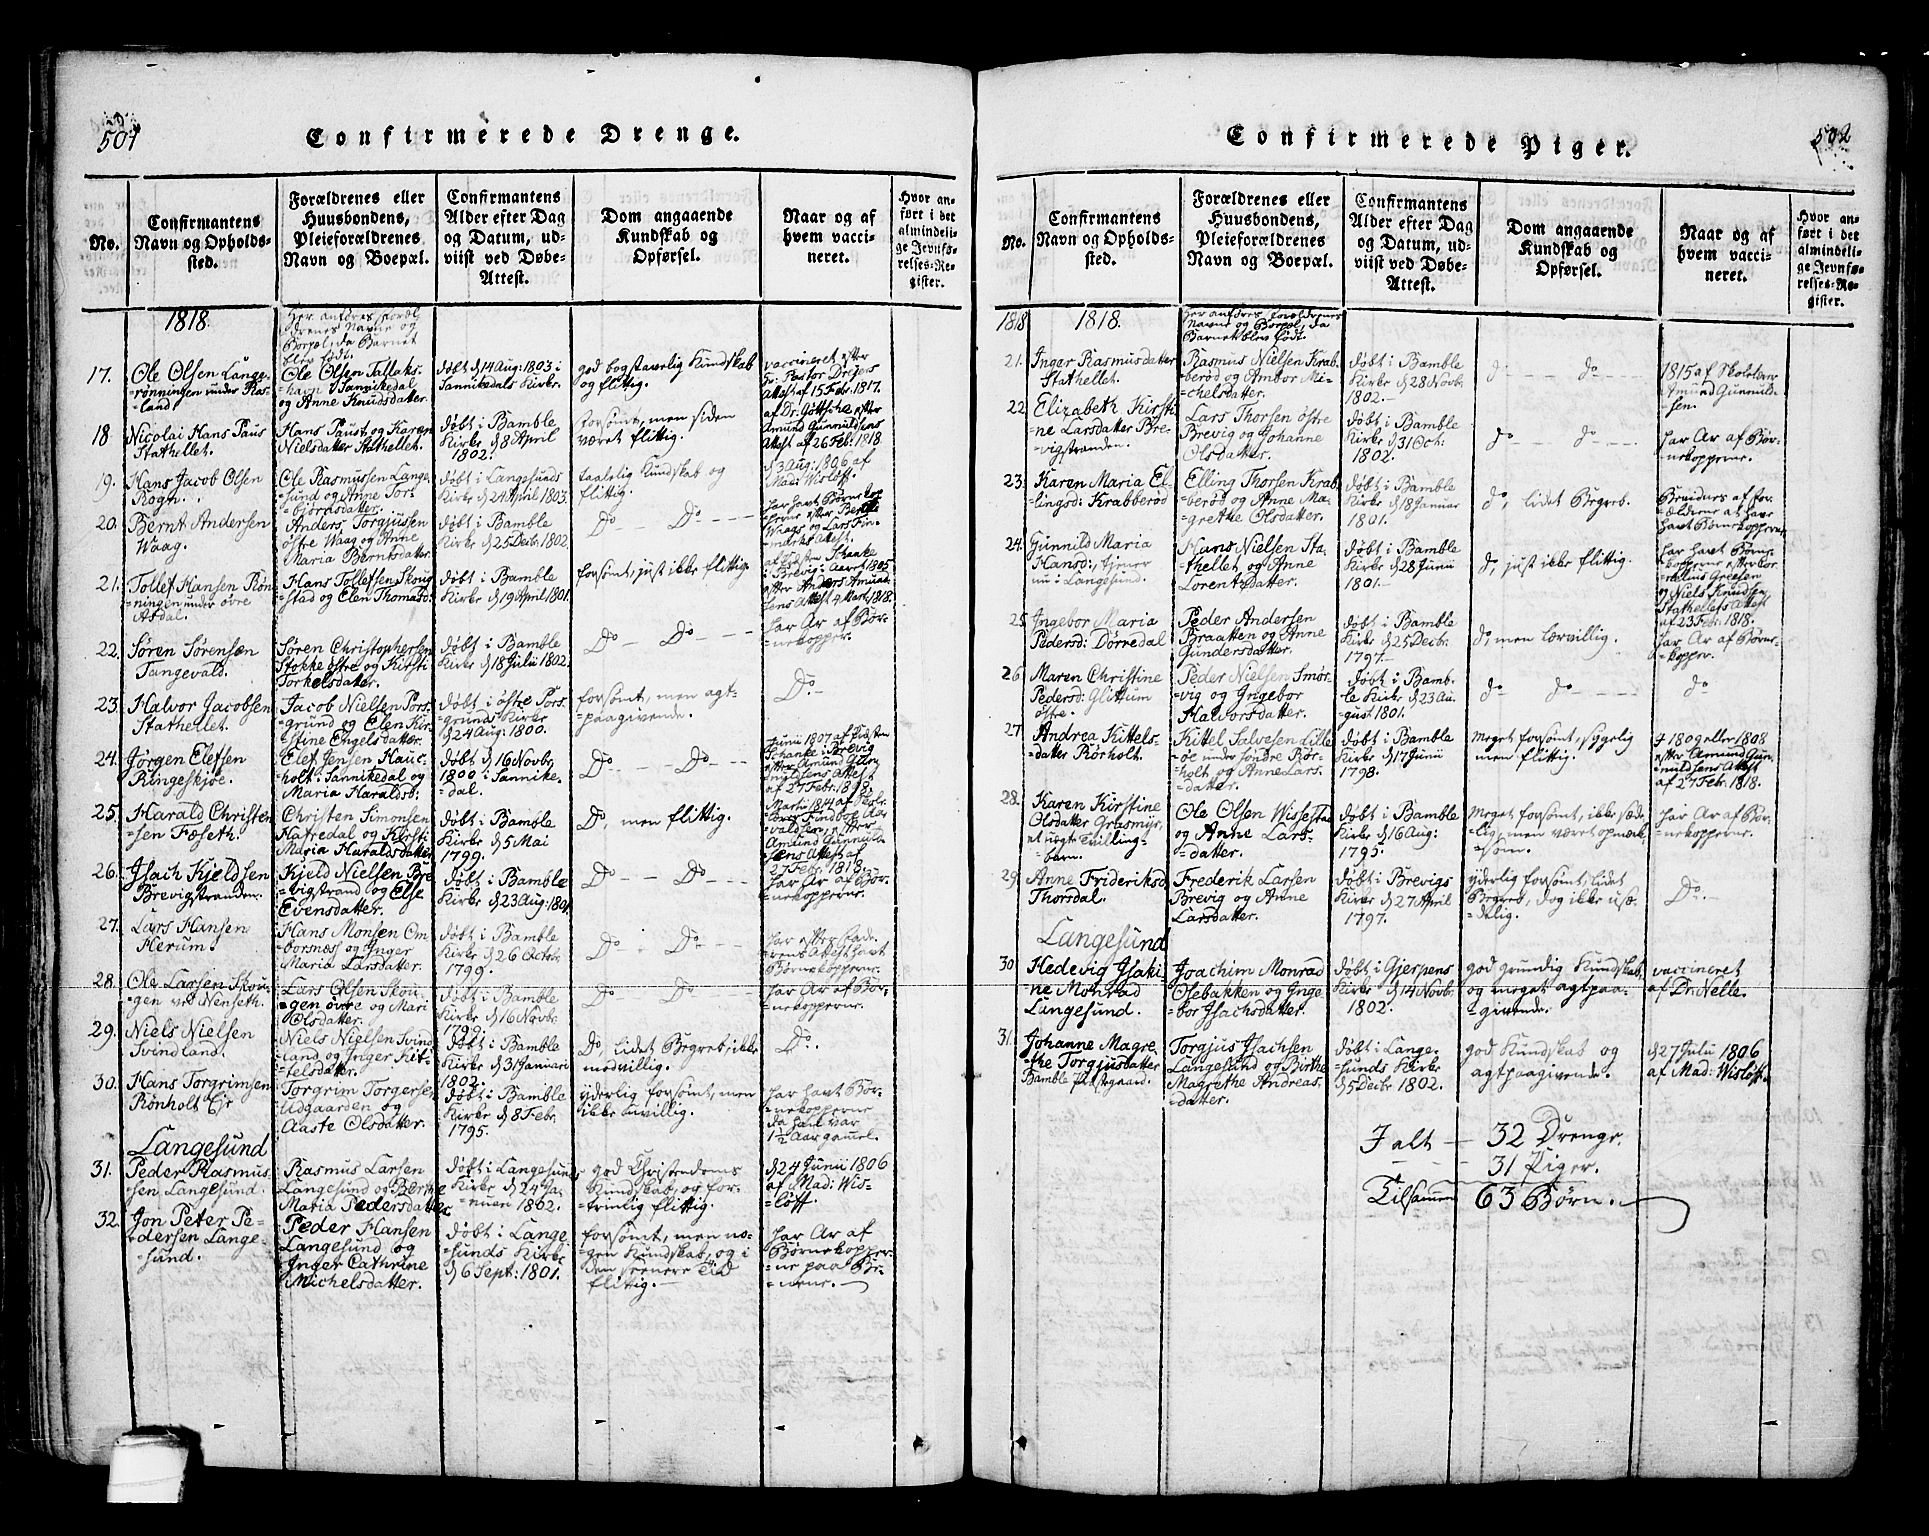 501
Confirmerede Drenge.
No.
Confirmantens
Navn og Opholds-
sted.
Forældrenes eller
Huusbondens,
Pleieforældrenes
Navn og Boepæl.
Confirmantens
Alder efter Dag
og Datum, ud-
viist ved Døbe-
Attest.
Dom angaaende
Kundskab og
Opførsel.
Naar og af
hvem vacci-
neret.
Hvor an-
ført i det
almindeli-
ge Jevnfø-
relses-Re-
gister.
1818.
Her anføres Foræl-
drenes Navne og
Boepæl, da Barnet
blev født.
17.
Ole Olsen Lange-
rønningen under Ras-
land.
Ole Olsen Tallaks-
havn i Sannikedal
og Anne Knudsdatter.
døbt d 14 Aug: 1803 i
Sannikedals Kirke.
god bogstavelig Kundskab
og flittig.
vaccineret efter
Hr. Pastor Dreiers
Attest af 15 Febr. 1817.
18
Nicolai Hans Paus
Stathellet.
Hans Paust og Karen
Nielsdatter Stathellet.
døbt i Bamble
Kirke d 8 April
1802.
forsømt, men siden
været flittig.
af Dr. Gøttsche efter
Amund Gunnildsens
Attest af 26 Feb: 1818
19.
Hans Jacob Olsen
Rogn.
Ole Rasmussen Lange-
sund og Anne Tor-
bjørnsdatter.
døbt i Langesunds
Kirke d 24 April 1803.
taalelig Kundskab og
flittig.
d 3 Aug: 1806 af
Mad: Wisløff.
20.
Bernt Andersen
Waag.
Anders Torgjusen
østre Waag og Anne
Maria Berntsdatter.
døbt i Bamble
Kirke d 25 Decbr. 1802.
Do — Do —
har havt Børnekop-
perne efter Berthe
Waags og Lars Fin-
marks Attest.
21.
Tollef Hansen Røn-
ningen under øvre
Asdal.
Hans Tollefsen Skoug-
stad og Elen Thomasd:
døbt i Bamble
Kirke d 19 April 1801.
forsømt, just ikke flittig.
i Brevig i Aaret 1805
efter Anders Amund-
sens Attest 4 Mart. 1818.
22.
Søren Sørensen
Tangevald.
Søren Christophersen
Stokke østre og Kirsti
Torkelsdatter.
døbt i Bamble
Kirke d 18 Julii 1802.
Do — Do —
har Ar af Bør-
nekopper.
23.
Halvor Jacobsen
Stathellet.
Jacob Nielsen Pors-
grund og Elen Kir-
stine Engelsdatter.
døbt i østre Pors-
grunds Kirke
d 24 Aug: 1800.
forsømt, men agt-
paagivende.
Do.—
24.
Jørgen Elefsen
Ringeskjøe.
Elef Jensen Hauc-
holt i Sannikedal og
Maria Haraldsd:
døbt d 16 Novbr.
1800 i Sannike-
dal.
Do — Do —
Junii 1807 af
Schanke i Brevig
efter Amund Gun-
nildsens Attest
af 27 Febr. 1818.
25.
Harald Christen-
sen Fæseth.
Christen Simonsen
Hafredal og Kirsti
Maria Haraldsdatter
døbt i Bamble
Kirke d 5 Mai
1799.
Do, men flittig.
Martii 1814 af
Findbo
efter
Amund Gunnild-
sens Attest af
27 Febr. 1818.
26.
Isach Kjeldsen
Brevigstranden.
Kjeld Nielsen Bre-
vigstrand og Else
Evensdatter.
døbt i Bamble
Kirke d 23 Aug: 1801
Do — Do —
har Ar af Bør-
nekopperne.
27.
Lars Hansen
Herum.
Hans Monsen Om-
borsnæss og Inger
Maria Larsdatter.
døbt i Bamble
Kirke d 26 Octobr.
1799.
Do — Do —
har efter Fade-
rens Attest havt
Børnekopperne.
28.
Ole Larsen Skou-
gen ved Nenseth.
Lars Olsen Skou-
gen øvre og Mari
Olsdatter.
døbt i Bamble
Kirke d 16 Novbr.
1799.
Do — Do —
har Ar af Bør-
nekopperne.
29.
Niels Nielsen
Svindland.
Niels Nielsen Svind-
land og Inger Kit-
telsdatter.
døbt i Bamble
Kirke d 31 Januari
1802.
Do, lidet Begreb, ikke
modvillig.
Do.—
30.
Hans Torgrimsen
Rønholt Eje
Torgrim Torgersen
Udgaarden og
Aaste Olsdatter.
døbt i Bamble
Kirke d 8 Febr.
1795.
yderlig forsømt, men
ikke uvillig.
har havt Bør-
nekopperne
da han var
1½ Aar gammel.
Langesund
31.
Peder Rasmus-
sen Langesund.
Rasmus Larsen
Langesund og Berthe
Maria Pedersdatter
døbt i Langesunds
Kirke d 24 Ja-
nuari 1802.
god Christendoms
Kundskab, og for-
trinlig flittig.
d 24 Junii 1806
af Mad: Wis-
løff.
32.
Jon Peter Pe-
dersen Lange-
sund.
Peder Hansen
Langesund og
Inger Cathrine
Michelsdatter.
døbt i Lange-
sunds Kirke
d 6 Sept: 1801.
forsømt, men no-
gen Kundskab, og i
den seenere Tid
flittig.—
har Ar af
Børnekopper-
ne paa Be-
nene.—
502
Confirmerede Piger.
No.
Confirmantens
Navn og Opholds-
sted.
Forældrenes eller
Huusbondens,
Pleieforældrenes
Navn og Boepæl.
Confirmantens
Alder efter Dag
og Datum, ud-
viist ved Døbe-
Attest.
Dom angaaende
Kundskab og
Opførsel.
Naar og af
hvem vacci-
neret.
Hvor an-
ført i det
almindeli-
ge Jevnfø-
relses-Re-
gister.
1818
1818.
Her anføres Forældrenes
Navne og Boepæl, da
Barnet blev født.
21.
Inger Rasmusdatter
Stathellet.
Rasmus Nielsen Krab-
berød og Ambor Mi-
chelsdatter.
døbt i Bamble
Kirke d 28 Novbr.
1802.—
do — Do —
1815 af Skolelærer
Amund Gunnild-
sen.
22.
Elizabeth Kirsti-
ne Larsdatter Bre-
vigstranden.
Lars Thorsen østre
Brevig og Johanne
Olsdatter.
døbt i Bamble
Kirke d 31 Oct:
1802.
do — do —
har Ar af Bør-
nekopperne.
23.
Karen Maria El-
lingsd: Krabberød
Elling Thorsen Krab-
berød og Anne Ma-
grethe Olsdatter.
døbt i Bamble
Kirke d 18 Januar
1801.
do, lidet Begreb.
Bevidnes af For-
ældrene at have
havt Børnekopperne.
24.
Gunnild Maria
Hansd:, tjener
nu i Langesund.
Hans Nielsen Sta-
thellet og Anne
Lorentsdatter.
døbt i Bamble
Kirke d 28 Junii
1801.—
do, just ikke flittig.
har havt Børne-
kopperne efter Cor-
nelius Greesen
og Niels Knudsen
Stathellets Attest
af 23 Febr. 1818.
25
Ingebor Maria
Pedersd: Dørredal
Peder Andersen
Braatten og Anne
Gundersdatter.
døbt i Bamble
Kirke d 25 Decbr.
1797.—
do, men lærvillig.
har Ar af Børne-
kopper.
26
Maren Christine
Pedersd: Glittum
østre.
Peder Nielsen Smør-
vig og Ingebor
Halvorsdatter.
døbt i Bamb-
le Kirke d 23 Au-
gust 1801.
do do —
do
27.
Andrea Kittels-
datter Rørholt.
Kittel Salvesen Lille-
øe under søndre Rør-
holt og Anne Lars-
datter.
døbt i Bamble
Kirke d 17 Junii
1798.
meget forsømt, sygelig
men flittig.
i 1809 eller 1808
efter Amund Gun-
nuldsens Attest
af 27 Febr. 1818.
28.
Karen Kirstine
Olsdatter Grasmyr,
et uægte Tvilling-
barn.
Ole Olsen Wissestad
og Anne Lars-
datter.
døbt i Bamble
Kirke d 16 Aug:
1795.
meget forsømt, ikke sæde-
lig, men været opmærk-
som.
har Ar af Bør-
nekopperne.
29.
Anne Frideriksd.
Thorsdal.
Frederik Larsen
Brevig og Anne
Larsdatter.
døbt i Brevigs
Kirke d 27 April
1797.
yderlig forsømt, lidet
Begreb, dog ikke usæ-
delig.
Do.—
Langesund
30
Hedevig Isaki-
ne Monrad
Langesund.
Joachim Monrad
Osebakken og Inge-
bor Isachsdatter.
døbt i Gjerpens
Kirke d 14 Novbr.
1802.
god grundig Kundskab,
og meget agtpaa-
givende.
vaccineret
af Dr. Nelle.
31.
Johanne Magre-
the Torgjusdatter
Bamble Præstegaard.
Torgjus Isachsen
Langesund og Birthe
Magrethe Andreas-
datter.
døbt i Lange-
sunds Kirke
d 5 Decbr 1802.
god Kundskab og
agtpaagivende.
d 27 Julii 1806
af Mad: Wisløff.
I alt — 32 Drenge.
— 31 Piger.
Tilsammen 63 Børn.